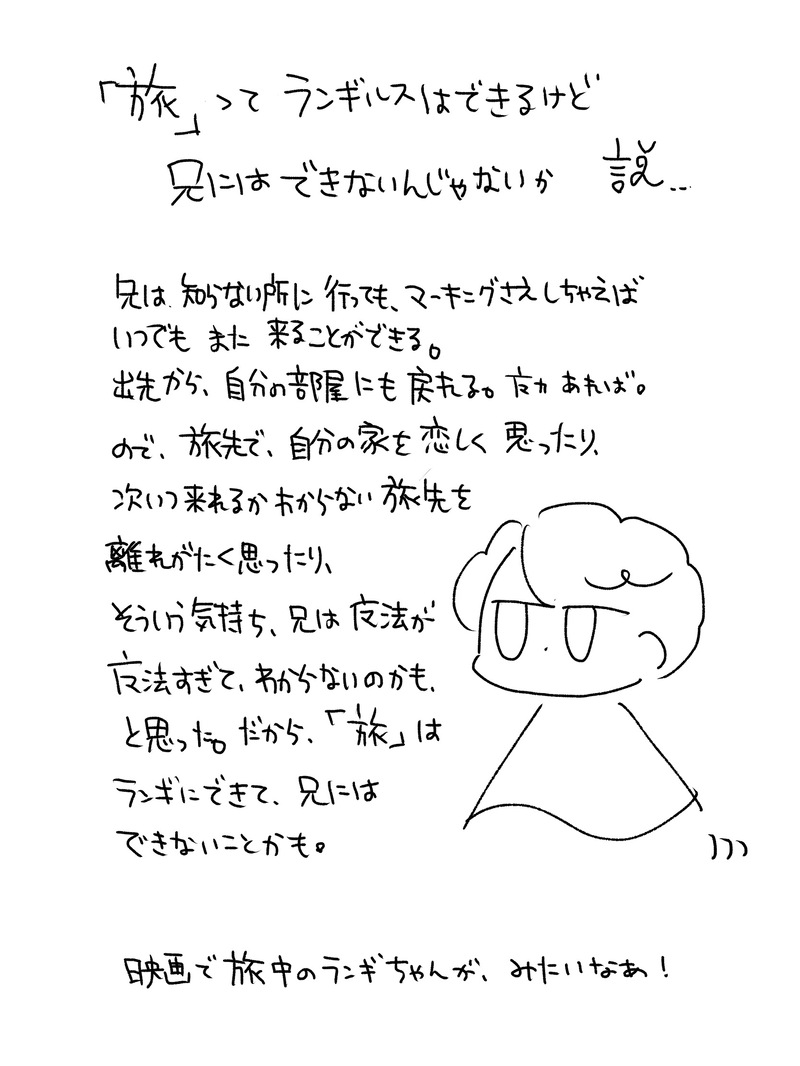 「旅」って ランギルスはできるけど
兄には できないんじゃないか 説...
兄は 知らない所に 行っても、マーキングさえしちゃえば
いつでも また 来ることができる。
出先から、自分の部屋にも 戻れる。マナ あれば。
ので、旅先で、自分の家を 恋しく 思ったり、
次いつ来れるか わからない 旅先を
離れがたく思ったり、
そういう気持ち、兄は 魔法が
魔法すぎて、わからないのかも、
と思った。だから、「旅」は
ランギにできて、兄には
できないことかも。
映画で 旅中のランギちゃんが、みたいなあ!